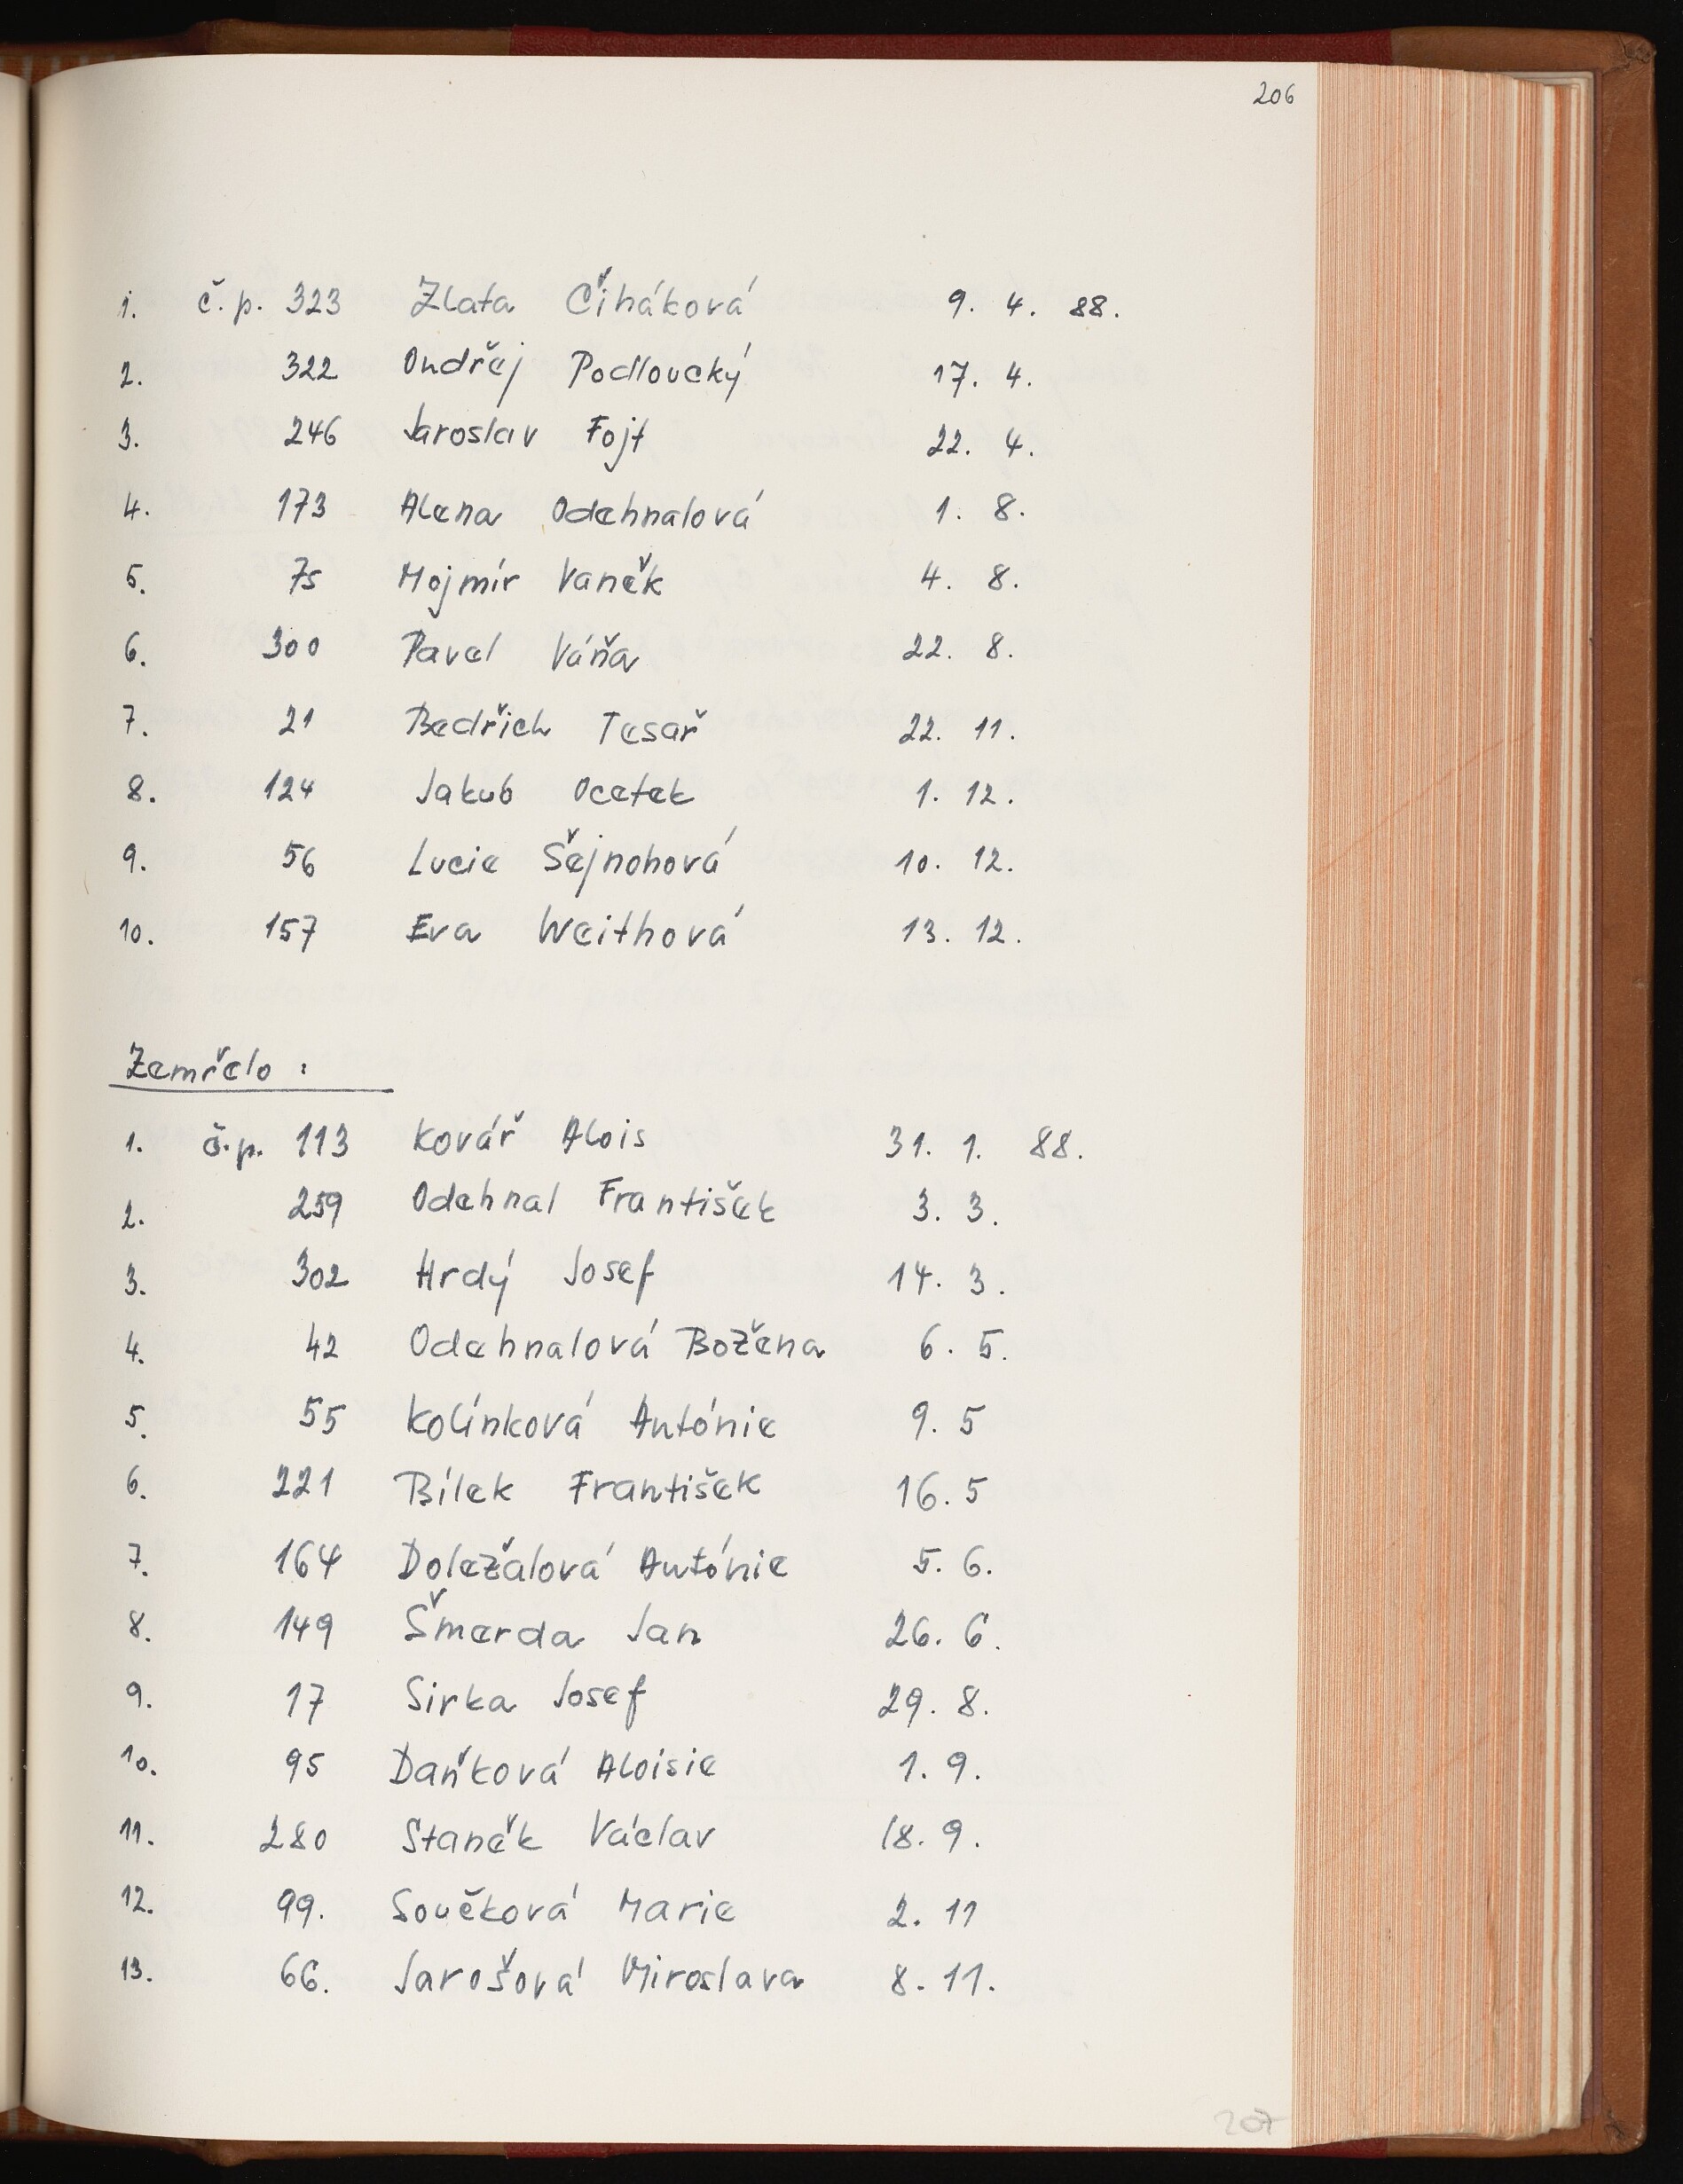 206
1. č.p. 323 Zlata Čiháková 9. 4. 88.
2. 322 Ondřej Podloucký 17. 4.
3. 246 Jaroslav Fojt 22. 4.
4. 173 Alena Odehnalová 1. 8.
5. 75 Mojmír Vaněk 4. 8.
6. 300 Pavel Váňa 22. 8.
7. 21 Bedřich Tesař 22. 11.
8. 124 Jakub Ocetek 1. 12.
9. 56 Lucie Šejnohová 10. 12.
10. 157 Eva Weithová 13. 12.
Zemřelo :
1. č.p. 113 Kovář Alois 31. 1. 88.
2. 259 Odehnal František 3. 3.
3. 302 Hrdý Josef 14. 3.
4. 42 Odehnalová Božena 6. 5.
5. 55 Kolínková Antónie 9. 5
6. 221 Bílek František 16. 5
7. 164 Doležalová Antónie 5. 6.
8. 149 Šmerda Jan 26. 6.
9. 17 Sirka Josef 29. 8.
10. 95 Daňková Aloisie 1. 9.
11. 280 Staněk Václav 18. 9.
12. 99. Součková Marie 2. 11
13. 66. Jarošová Miroslava 8. 11.
207